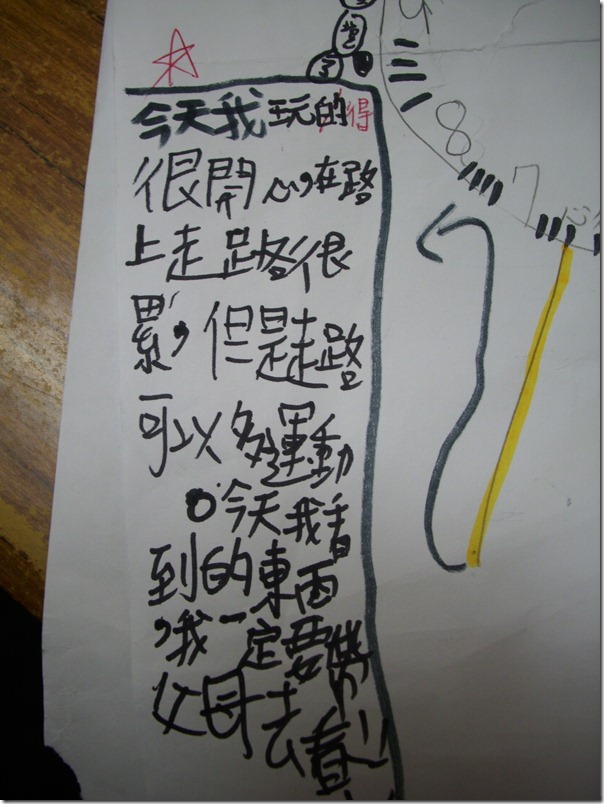 了
8
7
今天我玩的得
很開心,在路
上走路很
累,但是走路
可以多運動
。今天我看
到的東西
,我一定要帶
父母去看!!